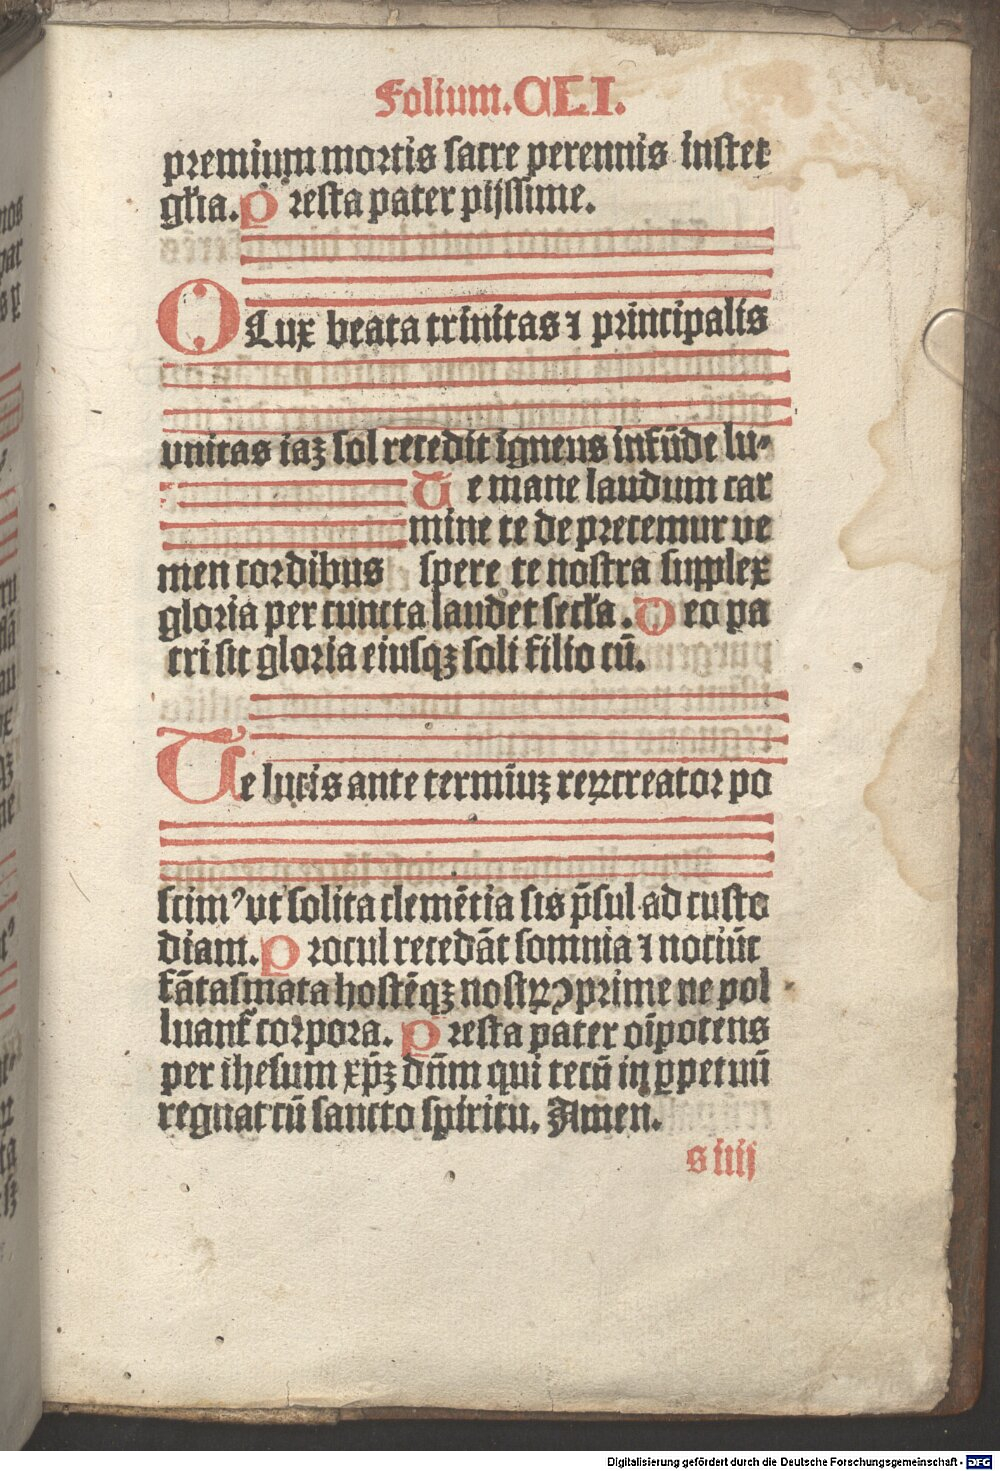 Folium. CLI.
premium mortis sacre perennis instet
gl'ia. Presta pater pijssime.
O Lux beata trinitas ⁊ principalis
vnitas iaꝫ sol recedit igneus infūde lu-
Te mane laudum car
mine te deprecemur ve
men cordibus spere te nostra supplex
gloria per cuncta laudet secl'a. Deo pa
tri sit gloria eiusqꝫ soli filio cū.
Te lucis ante termiuꝫ reꝝ creator po
scimꝰ vt solita clemētia sis p̄sul ad custo
diam. Procul recedāt somnia ⁊ noctiūt
fātasmata hostēqꝫ nostꝝ ↄprime ne pol
luant᷑ corpora. Presta pater oīpotens
per ihesum xp̄ꝫ dn̄m qui tecū in ꝑpetuū
regnat cū sancto spiritu. Amen.
s iiij
Digitalisierung gefördert durch die Deutsche Forschungsgemeinschaft - DFG